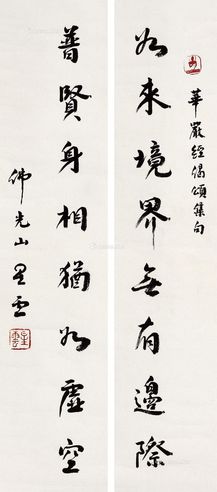 華嚴經偈頌集句
如來境界無有邊際
普賢身相猶如虛空
佛光山星雲